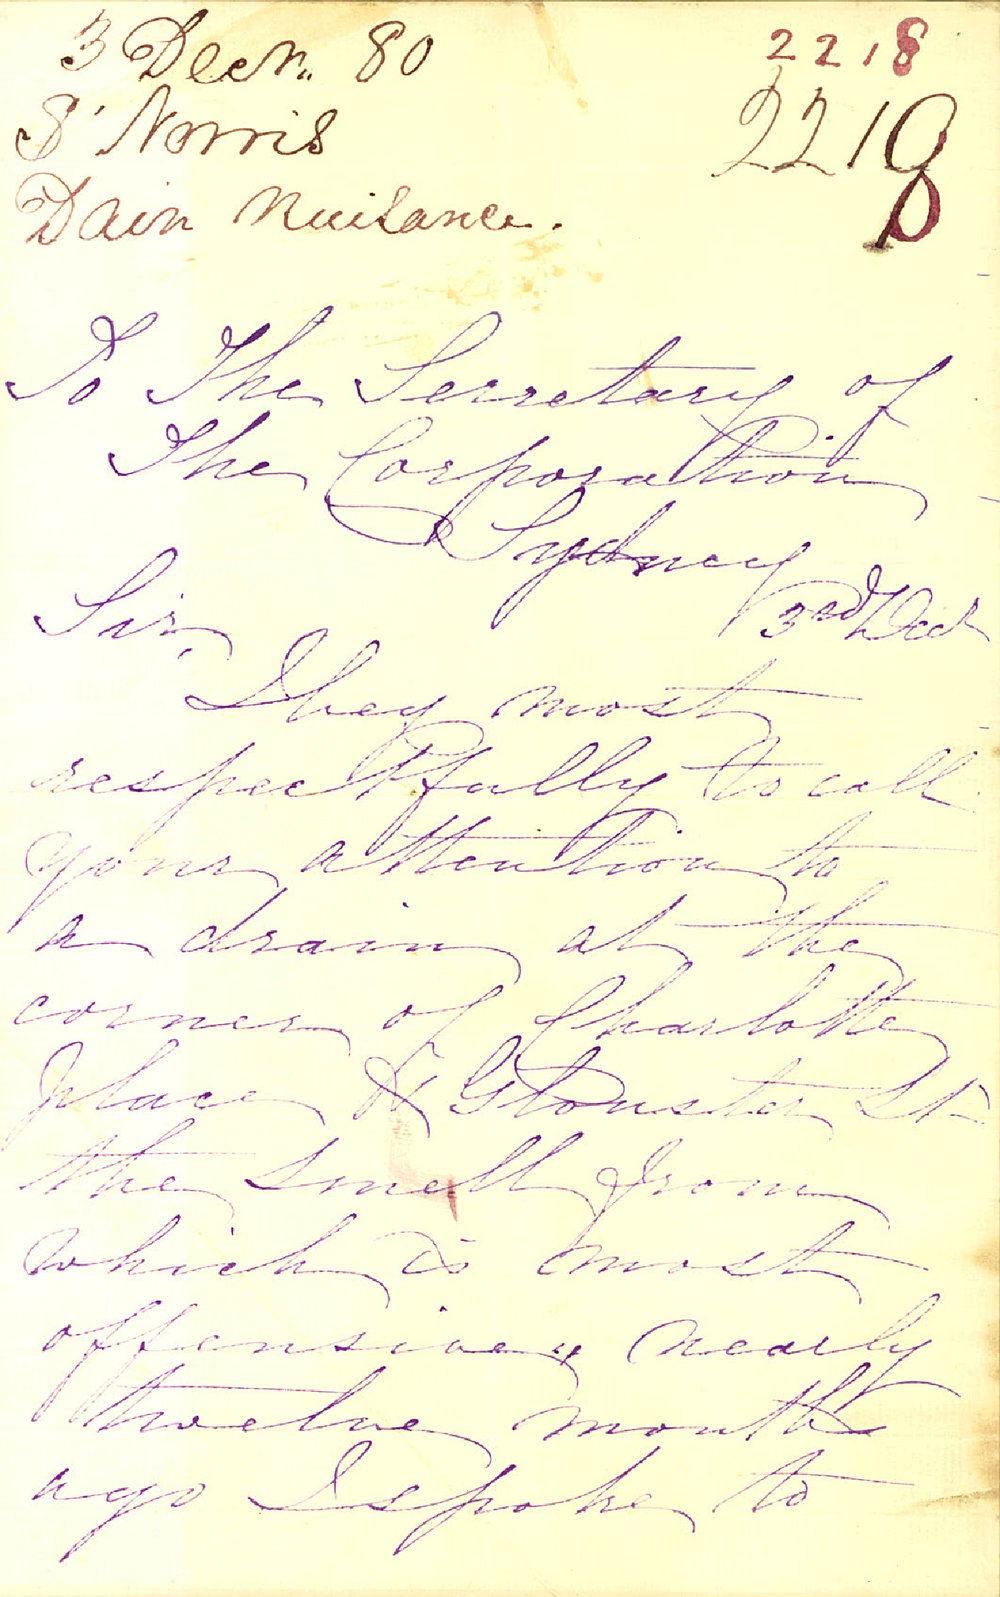 3 Decr. 80
2218
S' Norris
2218
Dain Nuisance.
To The Secretary of
The Corporation
Sydney
3rd Decr
Sir,
I beg most
respectfully to call
your attention to
a drain at the
corner of Charlotte
place & Glouster St
the smell from
which is most
offensive, nearly
twelve months
ago I spoke to